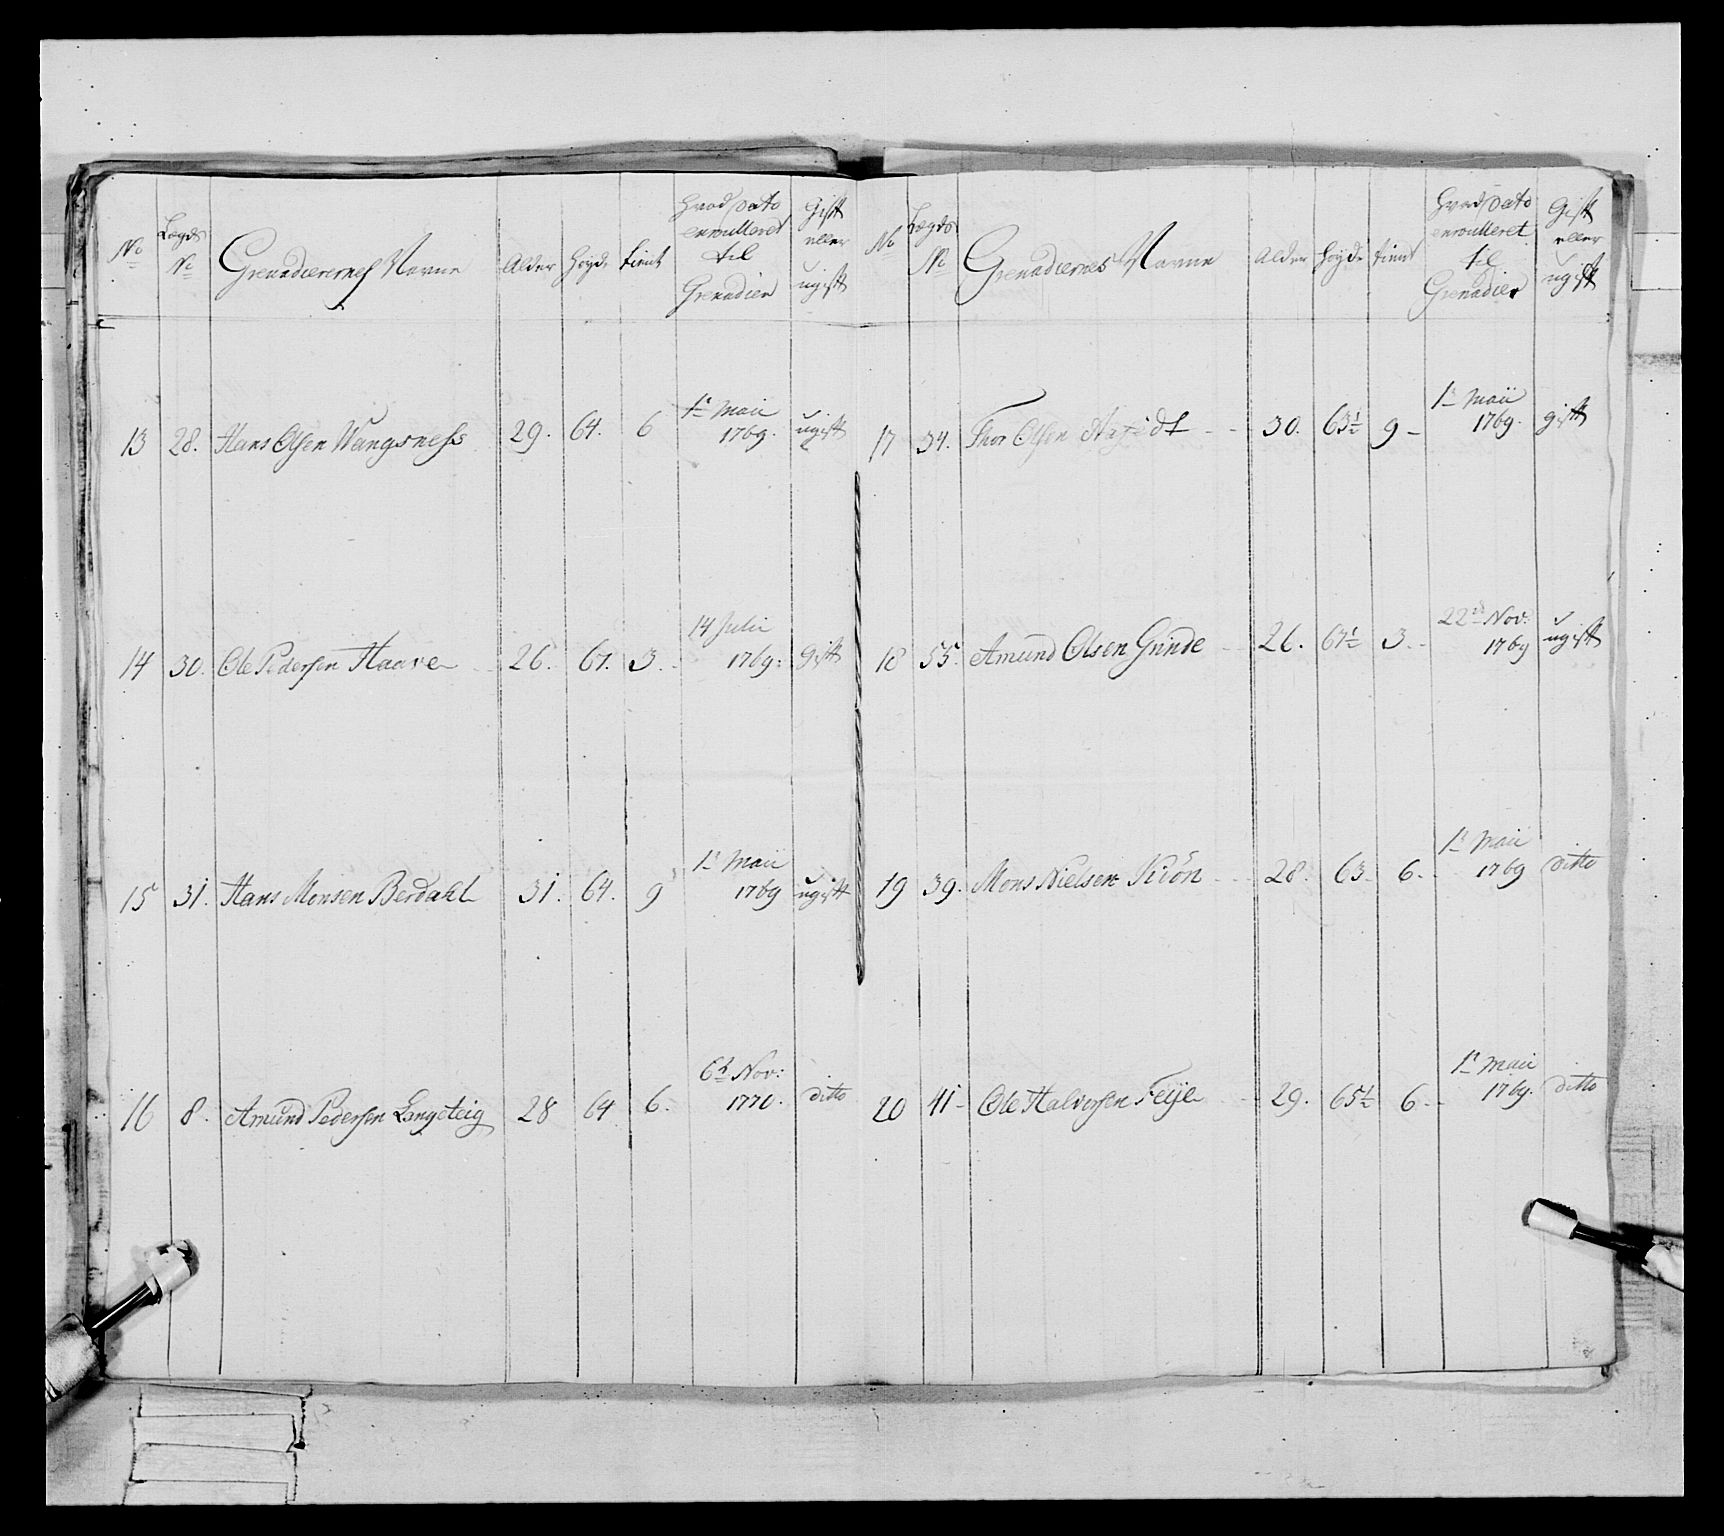 No Lægds No Grenadierernes Navne Alder Høyde tient Hvad Dato enroulleret til Grenadier Gift eller ugift
13 28. Hans Olsen Wangsness 29. 64. 6 1t Maii 1769. ugift
14 30. Ole Pedersen Haave 26. 67. 3. 14 Julii 1769. Gift
15 31. Hans Monsen Berdahl 31. 64. 9 1t Maii 1769 ugift
16 8. Amund Pedersen Langeteig 28 64 6. 6t Nov: 1770. ditto
No Lægds No Grenadiernes Navne Alder Høyde tient Hvad Dato enroulleret til Grenadier Gift eller ugift
17 34. Thor Olsen 30. 63½ 9 1t Maii 1769. gift
18 35. Amund Olsen Grinde 26. 67½ 3. 22d Nov: 1769 ugift
19 39. Mons Nielsen 28. 63. 6. 1t Maii 1769 ditto
20 41 Ole Halvorsen Feije 29. 65½ 6. 1t Maii 1769. ditto